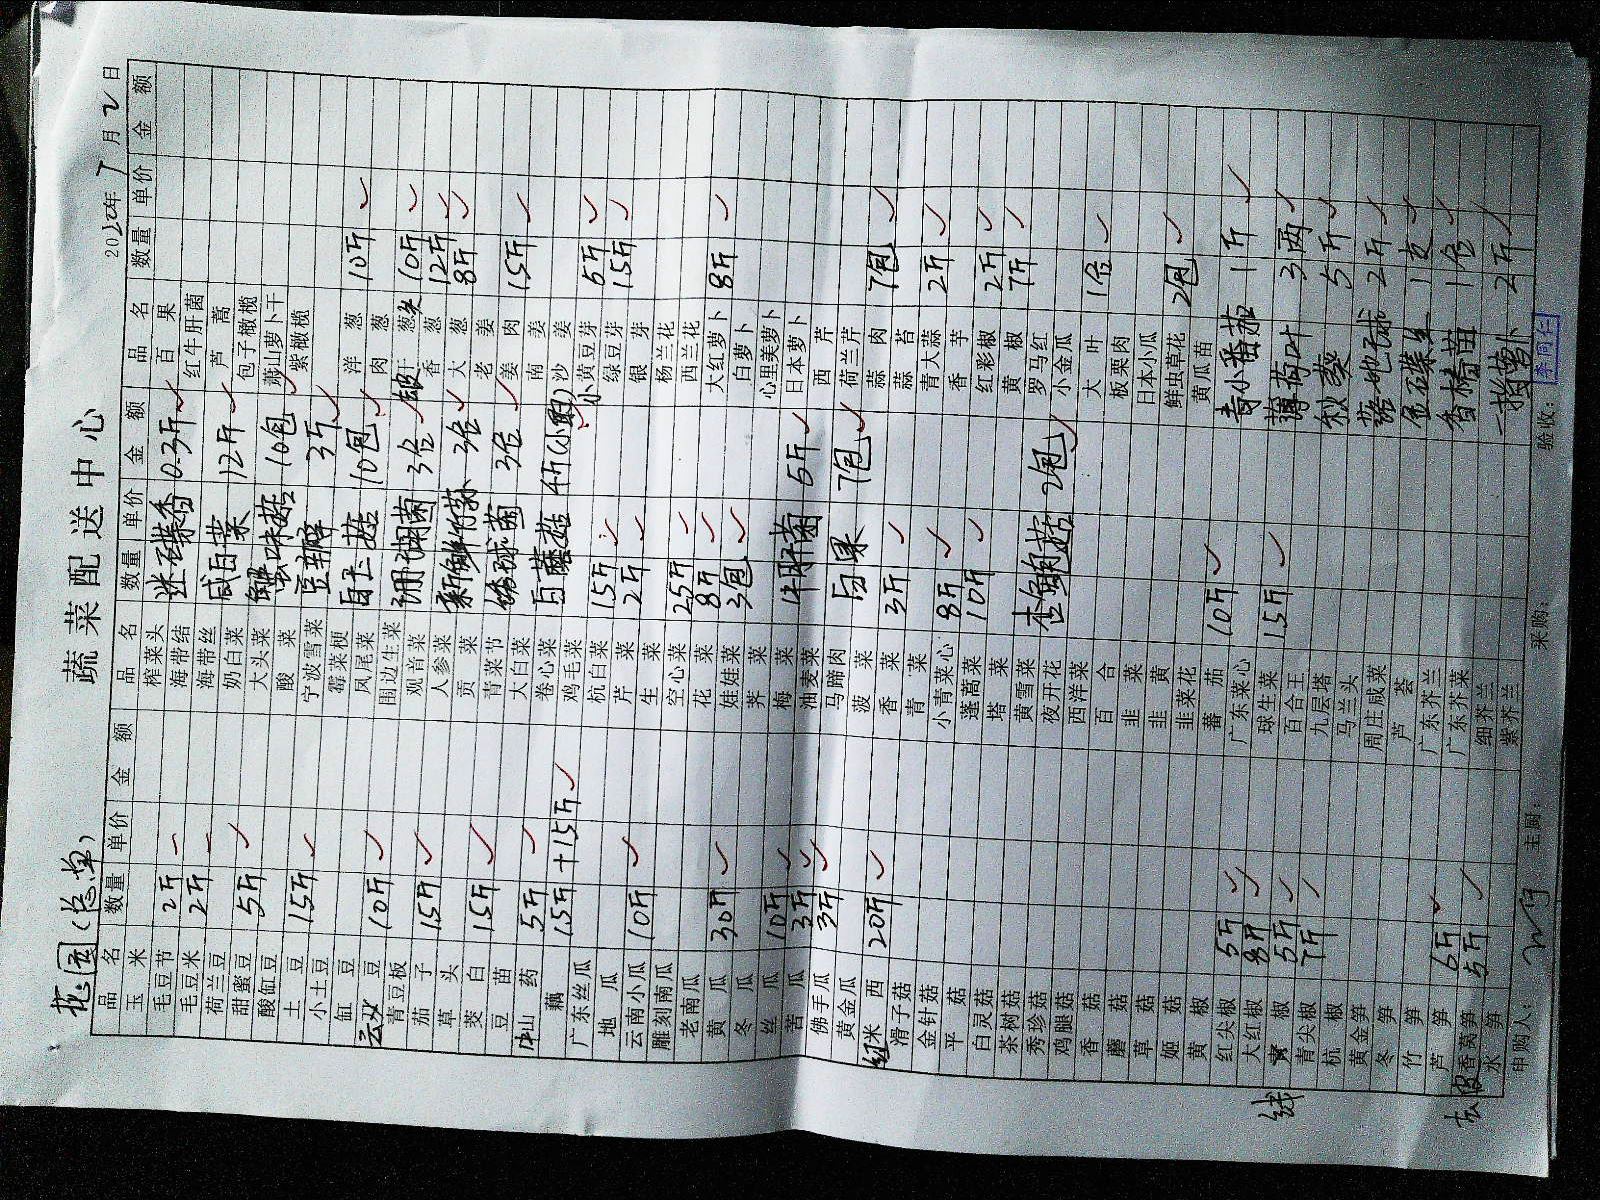 蔬菜配送中心
桃园(总单)
2020年7月2日
品名 数量 单价 金额
玉米
毛豆节 2斤
毛豆米 2斤
荷兰豆
甜蜜豆 5斤
酸缸豆
土豆 15斤
小土豆
缸豆
豆 10斤
青豆板
茄子 15斤
草头
茭白 15斤
豆苗
山药 5斤
藕 15斤+15斤
广东丝瓜
地瓜
云南小瓜 10斤
雕刻南瓜
老南瓜
黄瓜 30斤
冬瓜
丝瓜 10斤
苦瓜 3斤
佛手瓜 3斤
黄金瓜
红米西 20斤
滑子菇
金针菇
平菇
白灵菇
茶树菇
秀珍菇
鸡腿菇
香菇
蘑菇
草菇
姬菇
黄椒
红尖椒 5斤
大红椒 8斤
线椒 5斤
青尖椒 7斤
杭椒
黄金笋
冬笋
竹笋
芦笋 6斤
去皮香莴笋 5斤
水笋
品名 数量 单价 金额
榨菜头 迷迭香 0.3斤
海带结
海带丝 咸白菜 12斤
奶白菜
大头菜 蟹味菇 10包
酸菜
宁波雪菜 豆瓣 3斤
霉菜梗
凤尾菜 白玉菇 10包
围边生菜
观音菜 珊瑚菌 3合
人参菜
贡菜 3合
青菜节
大白菜 绣球菌 3合
卷心菜
鸡毛菜 白蘑菇 4斤(小的)
杭白菜 15斤
芹菜 2斤
生菜
空心菜 25斤
花菜 8斤
娃娃菜 3包
荠菜
梅菜 牛肝菌 6斤
油麦菜
马蹄肉 白果 7包
菠菜
香菜 3斤
青菜
小青菜心 8斤
蓬蒿菜 10斤
塔菜
黄雪菜
夜开花 杏鲍菇 2包
西洋菜
百合
韭菜
韭黄
韭菜花
蕃茄 10斤
广东菜心
球生菜 15斤
百合王
九层塔
马兰头
周庄咸菜
芦荟
广东芥兰
广东芥菜
细芥兰
紫芥兰
品名 数量 单价 金额
百果
红牛肝菌
芦蒿
包子橄榄
萧山萝卜干
紫橄榄
洋葱 10斤
肉葱
干葱头 10斤
香葱 12斤
大葱 8斤
老姜
姜肉 15斤
南姜
沙姜
小黄豆芽 6斤
绿豆芽 15斤
银芽
杨兰花
西兰花
大红萝卜 8斤
白萝卜
心里美萝卜
日本萝卜
西芹
荷兰芹
蒜肉 7包
蒜苔
青大蒜 2斤
香芋
红彩椒 2斤
黄椒 7斤
罗马红
小金瓜
大叶 1合
板栗肉
日本小瓜
鲜虫草花 2包
黄瓜苗
青小番茄 1斤
薄荷叶 3两
秋葵 5斤
2斤
1支
香椿苗 1合
一指萝卜 2斤
申购人： 主厨： 采购： 验收：